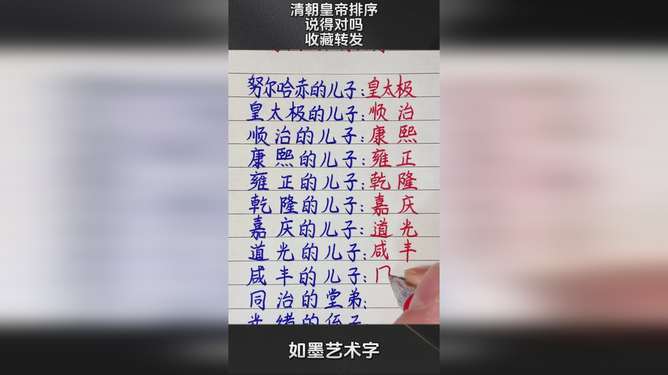 清朝皇帝排序
说得对吗
收藏转发
努尔哈赤的儿子:皇太极
皇太极的儿子:顺治
顺治的儿子:康熙
康熙的儿子:雍正
雍正的儿子:乾隆
乾隆的儿子:嘉庆
嘉庆的儿子:道光
道光的儿子:咸丰
咸丰的儿子:
同治的堂弟:
光绪的侄子
如墨艺术字